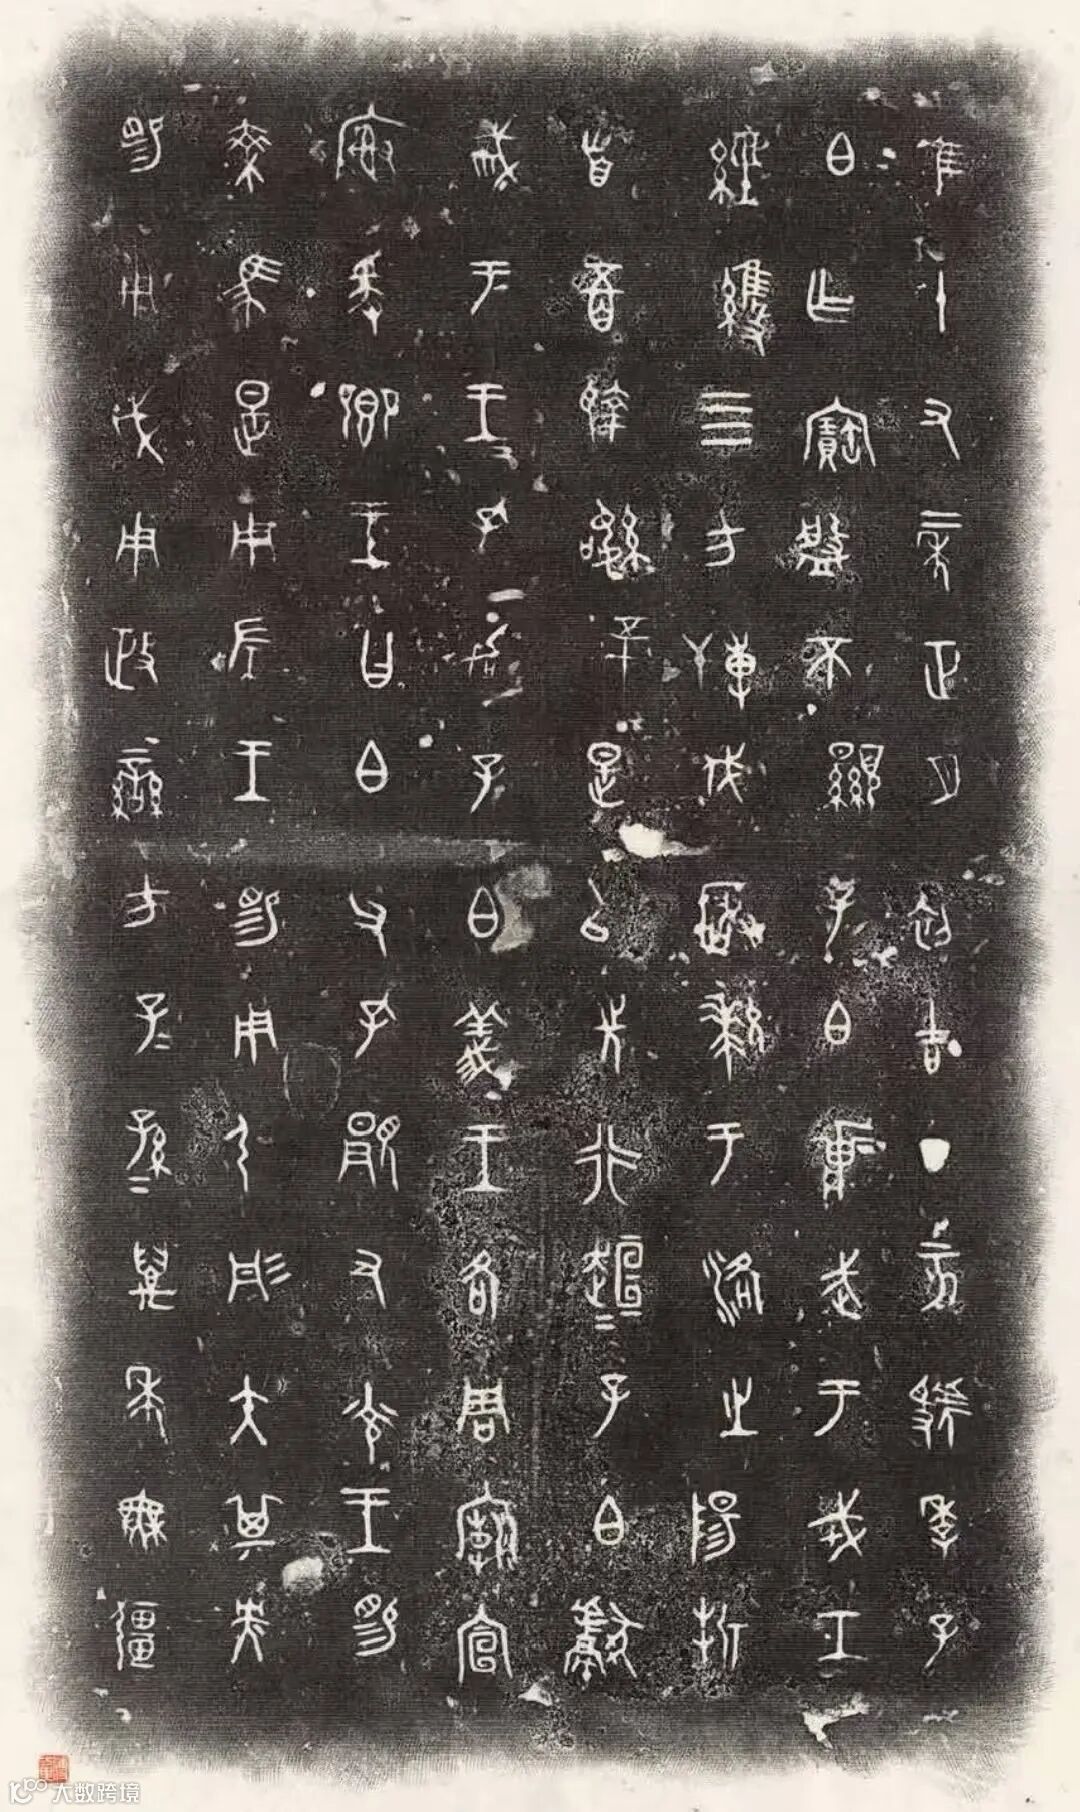 隹十又二年正月初吉丁亥虢季子
白乍寶盤不顯子白𤕌武于戎工
經𦄂四方搏伐玁狁于洛之陽折
首五百執訊五十是以先行𧻚𧻚子白獻
馘于王王孔加子白義王各周廟宣
廟爰卿王曰白父孔顯又光王易
乘馬是用左王易用弓彤矢其央
易用戉用政蠻方子子孫孫萬年無疆
大数跨境